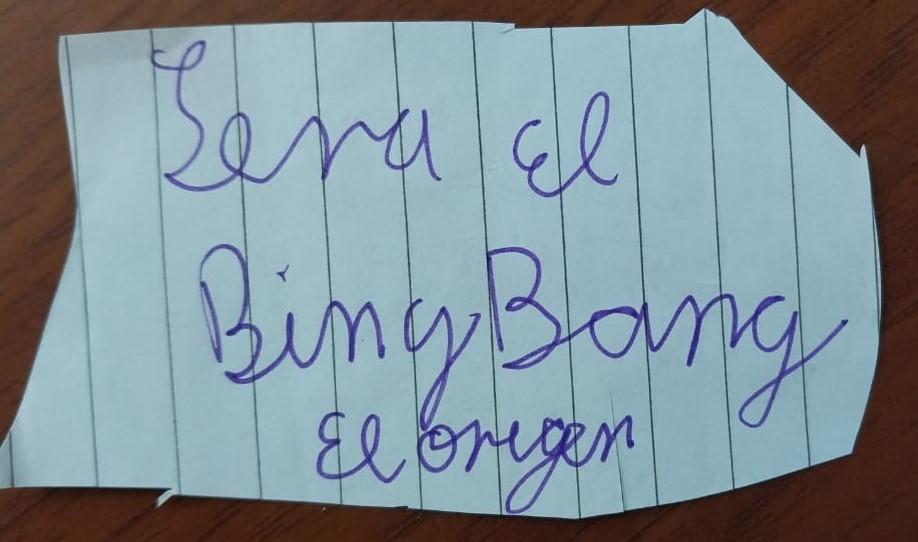 Sera el
Bing Bang
El origen